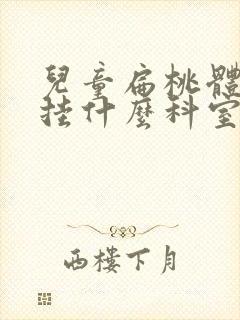 兒童扁桃體
挂什麼科室
西樓下月